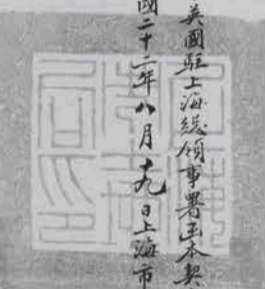 英國駐上海總領事署函本契
國二十二年八月十九日上海市